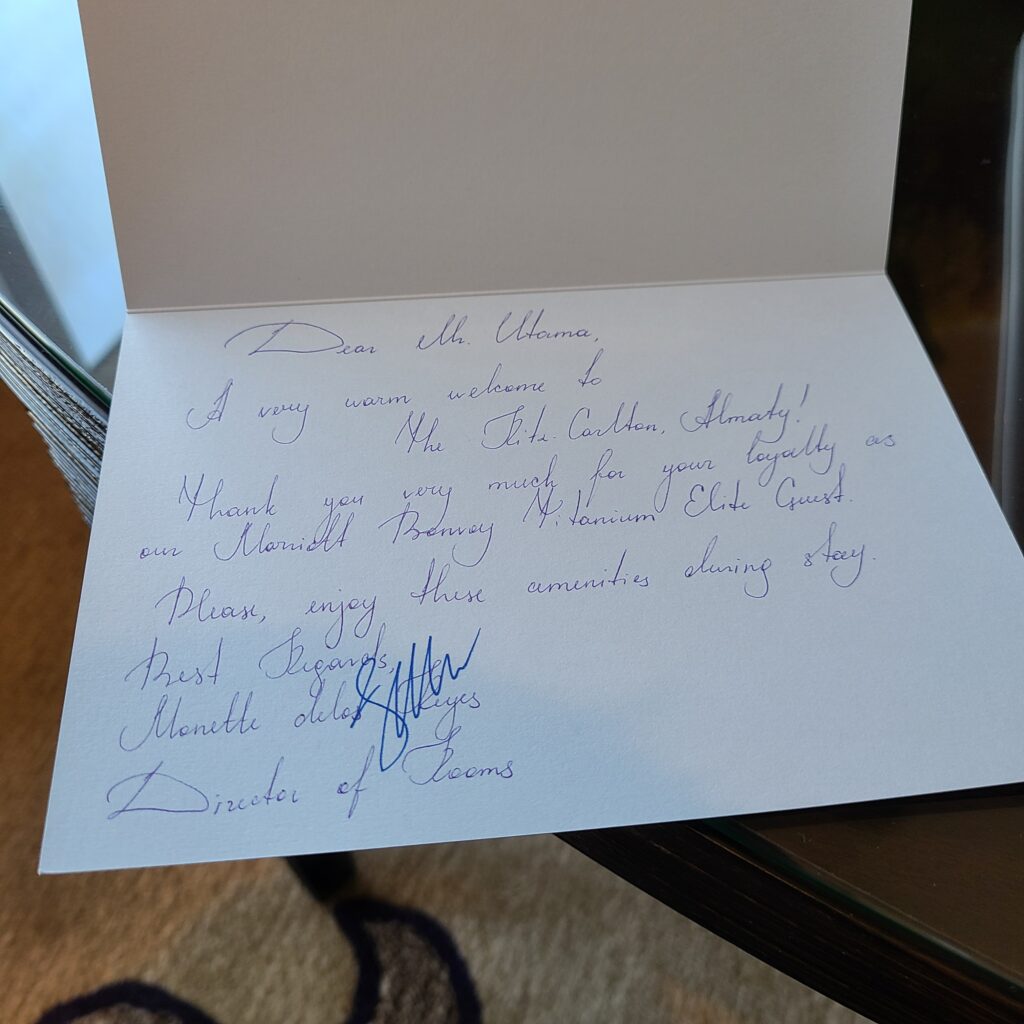 Dear Mr. Utama,
A very warm welcome to
The Ritz-Carlton, Almaty!
Thank you very much for your loyalty as
our Marriott Bonvoy Titanium Elite Guest.
Please, enjoy these amenities during stay.
Best Regards,
Monette delos Reyes
Director of Rooms